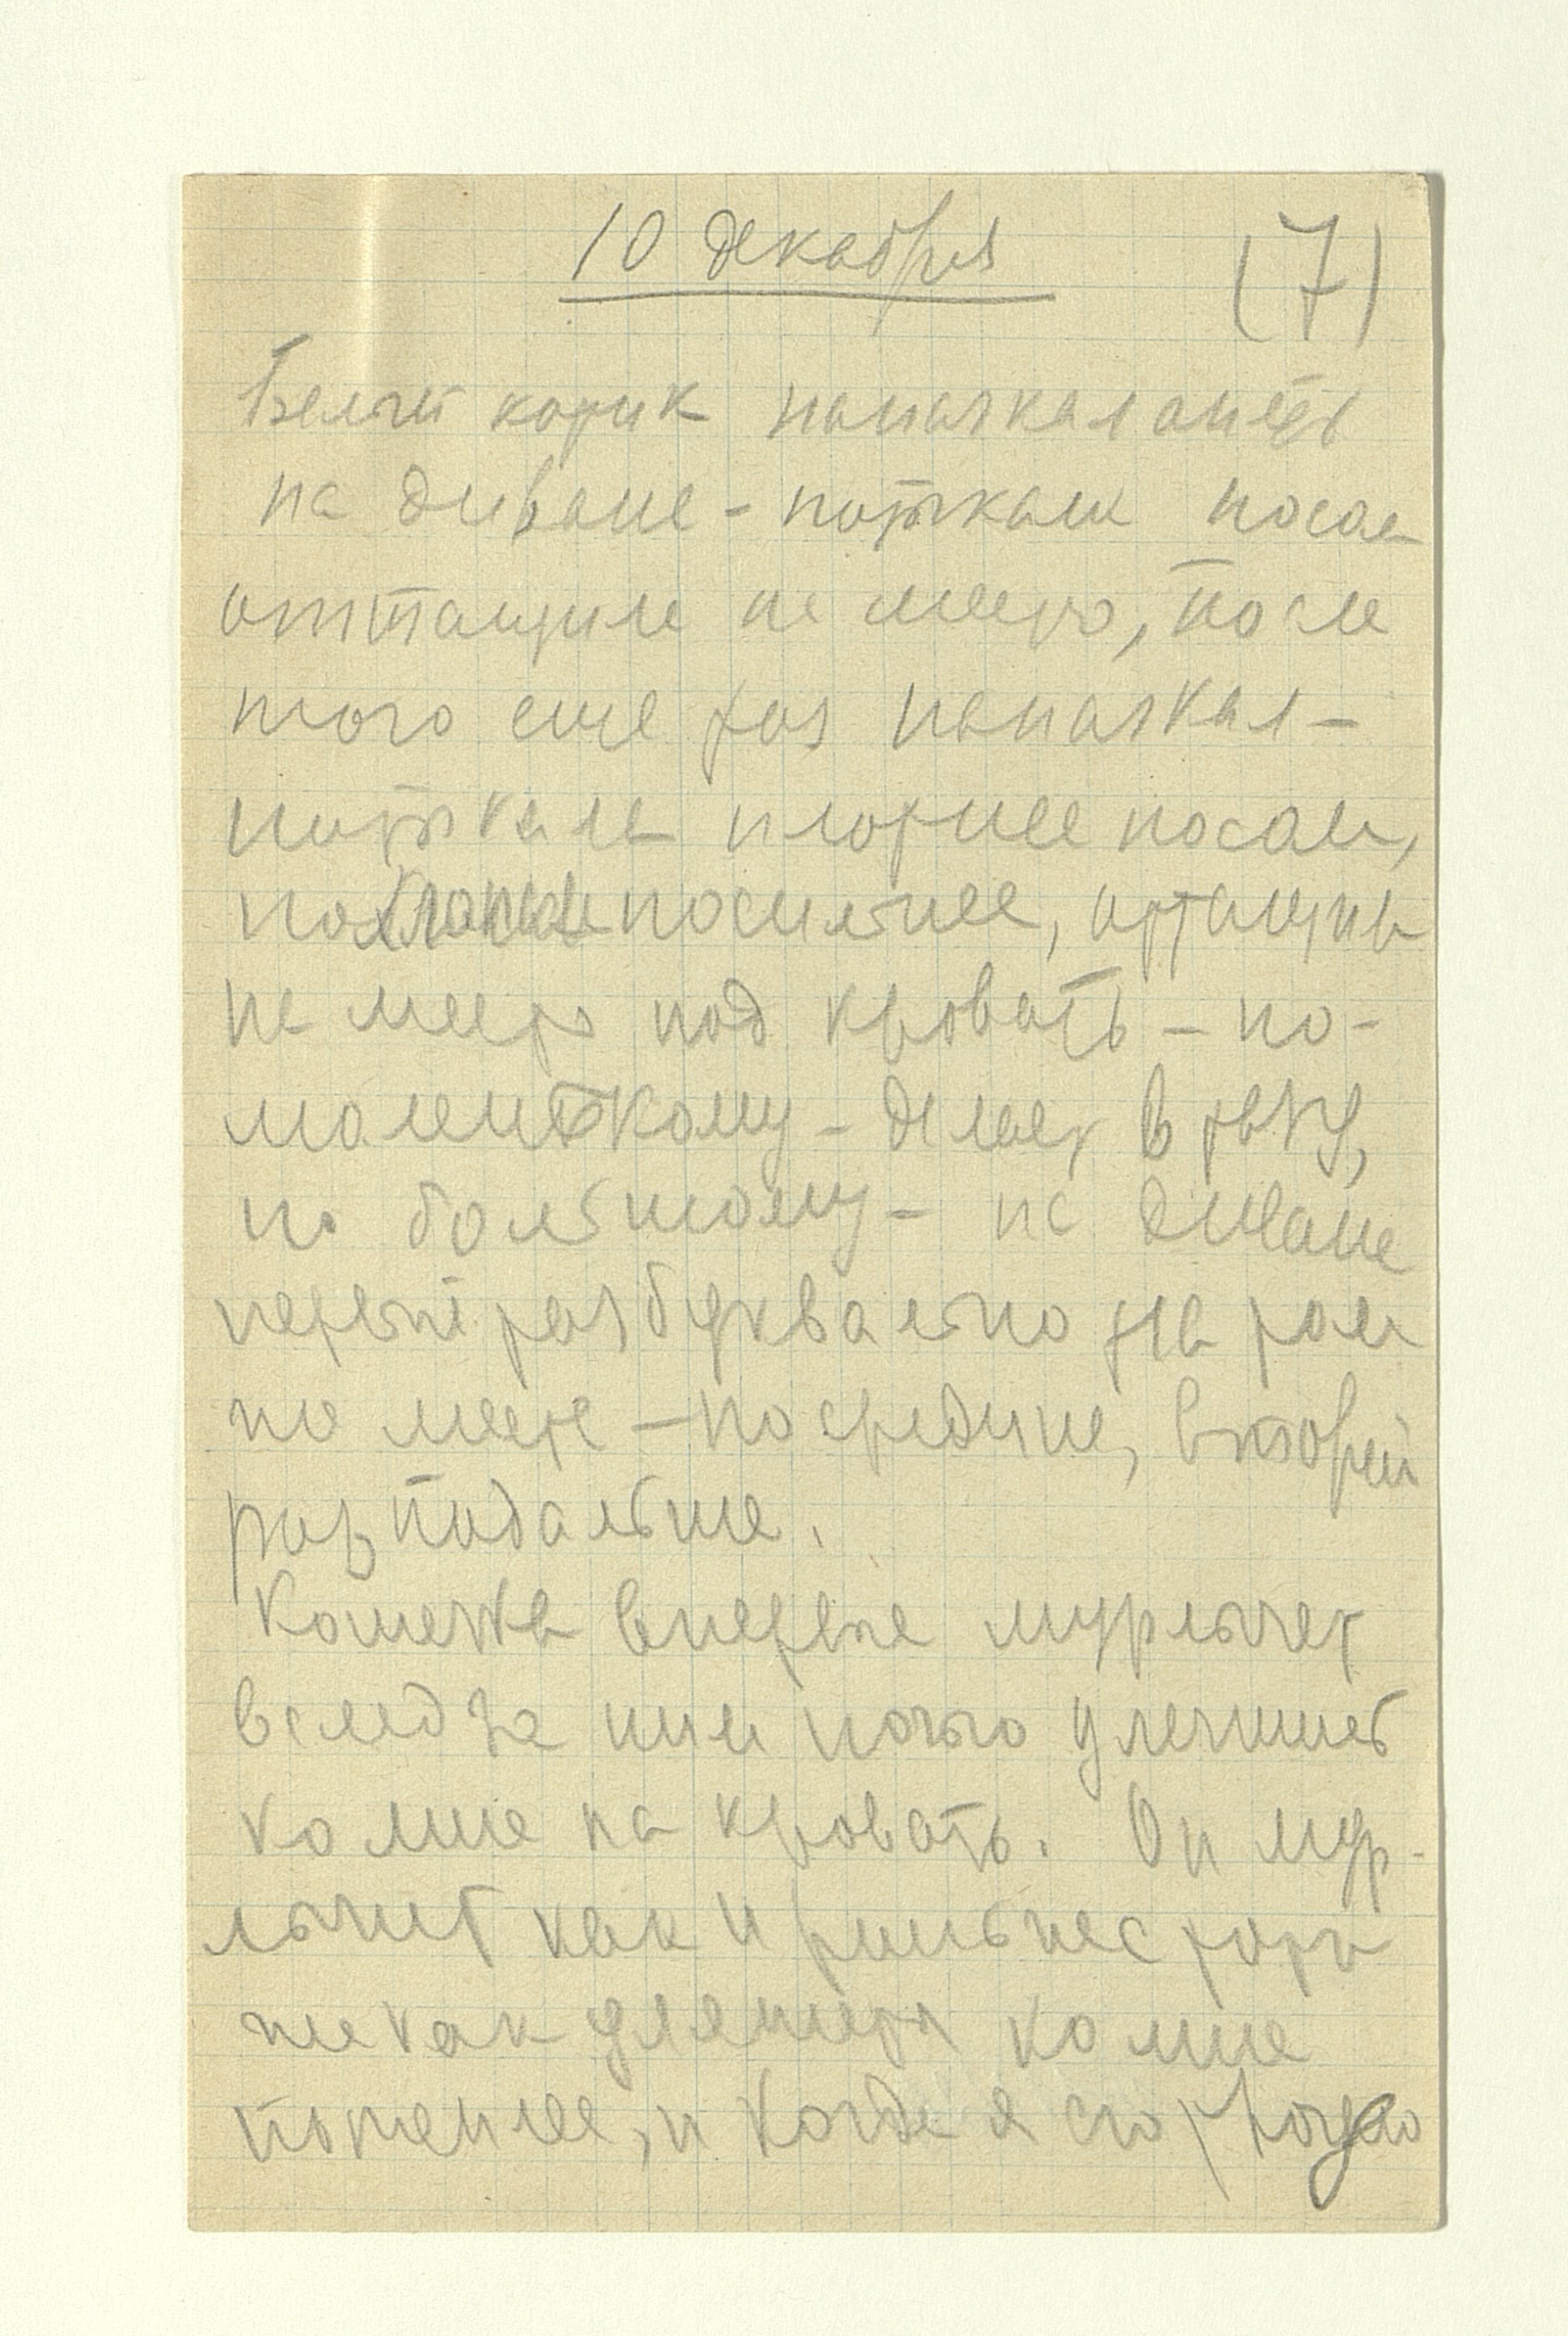 10 декабря (7)
Белый котик напачкал опять
на диване - потыкали носом
оттащили на место, после
того еще раз напачкал -
потыкали плотнее носом,
похлопали посильнее, оттащили
на место под кровать - по-
маленькому - делает в
по большому - на диване
первый раз буквально на том
же месте - посредине, второй
раз подальше.
Кошечка впервые мурлычет
вслед за ним ночью улегшись
ко мне на кровать. Он мур-
лычит как и раньше
как уляжется ко мне
потеплее, и когда я его трогаю